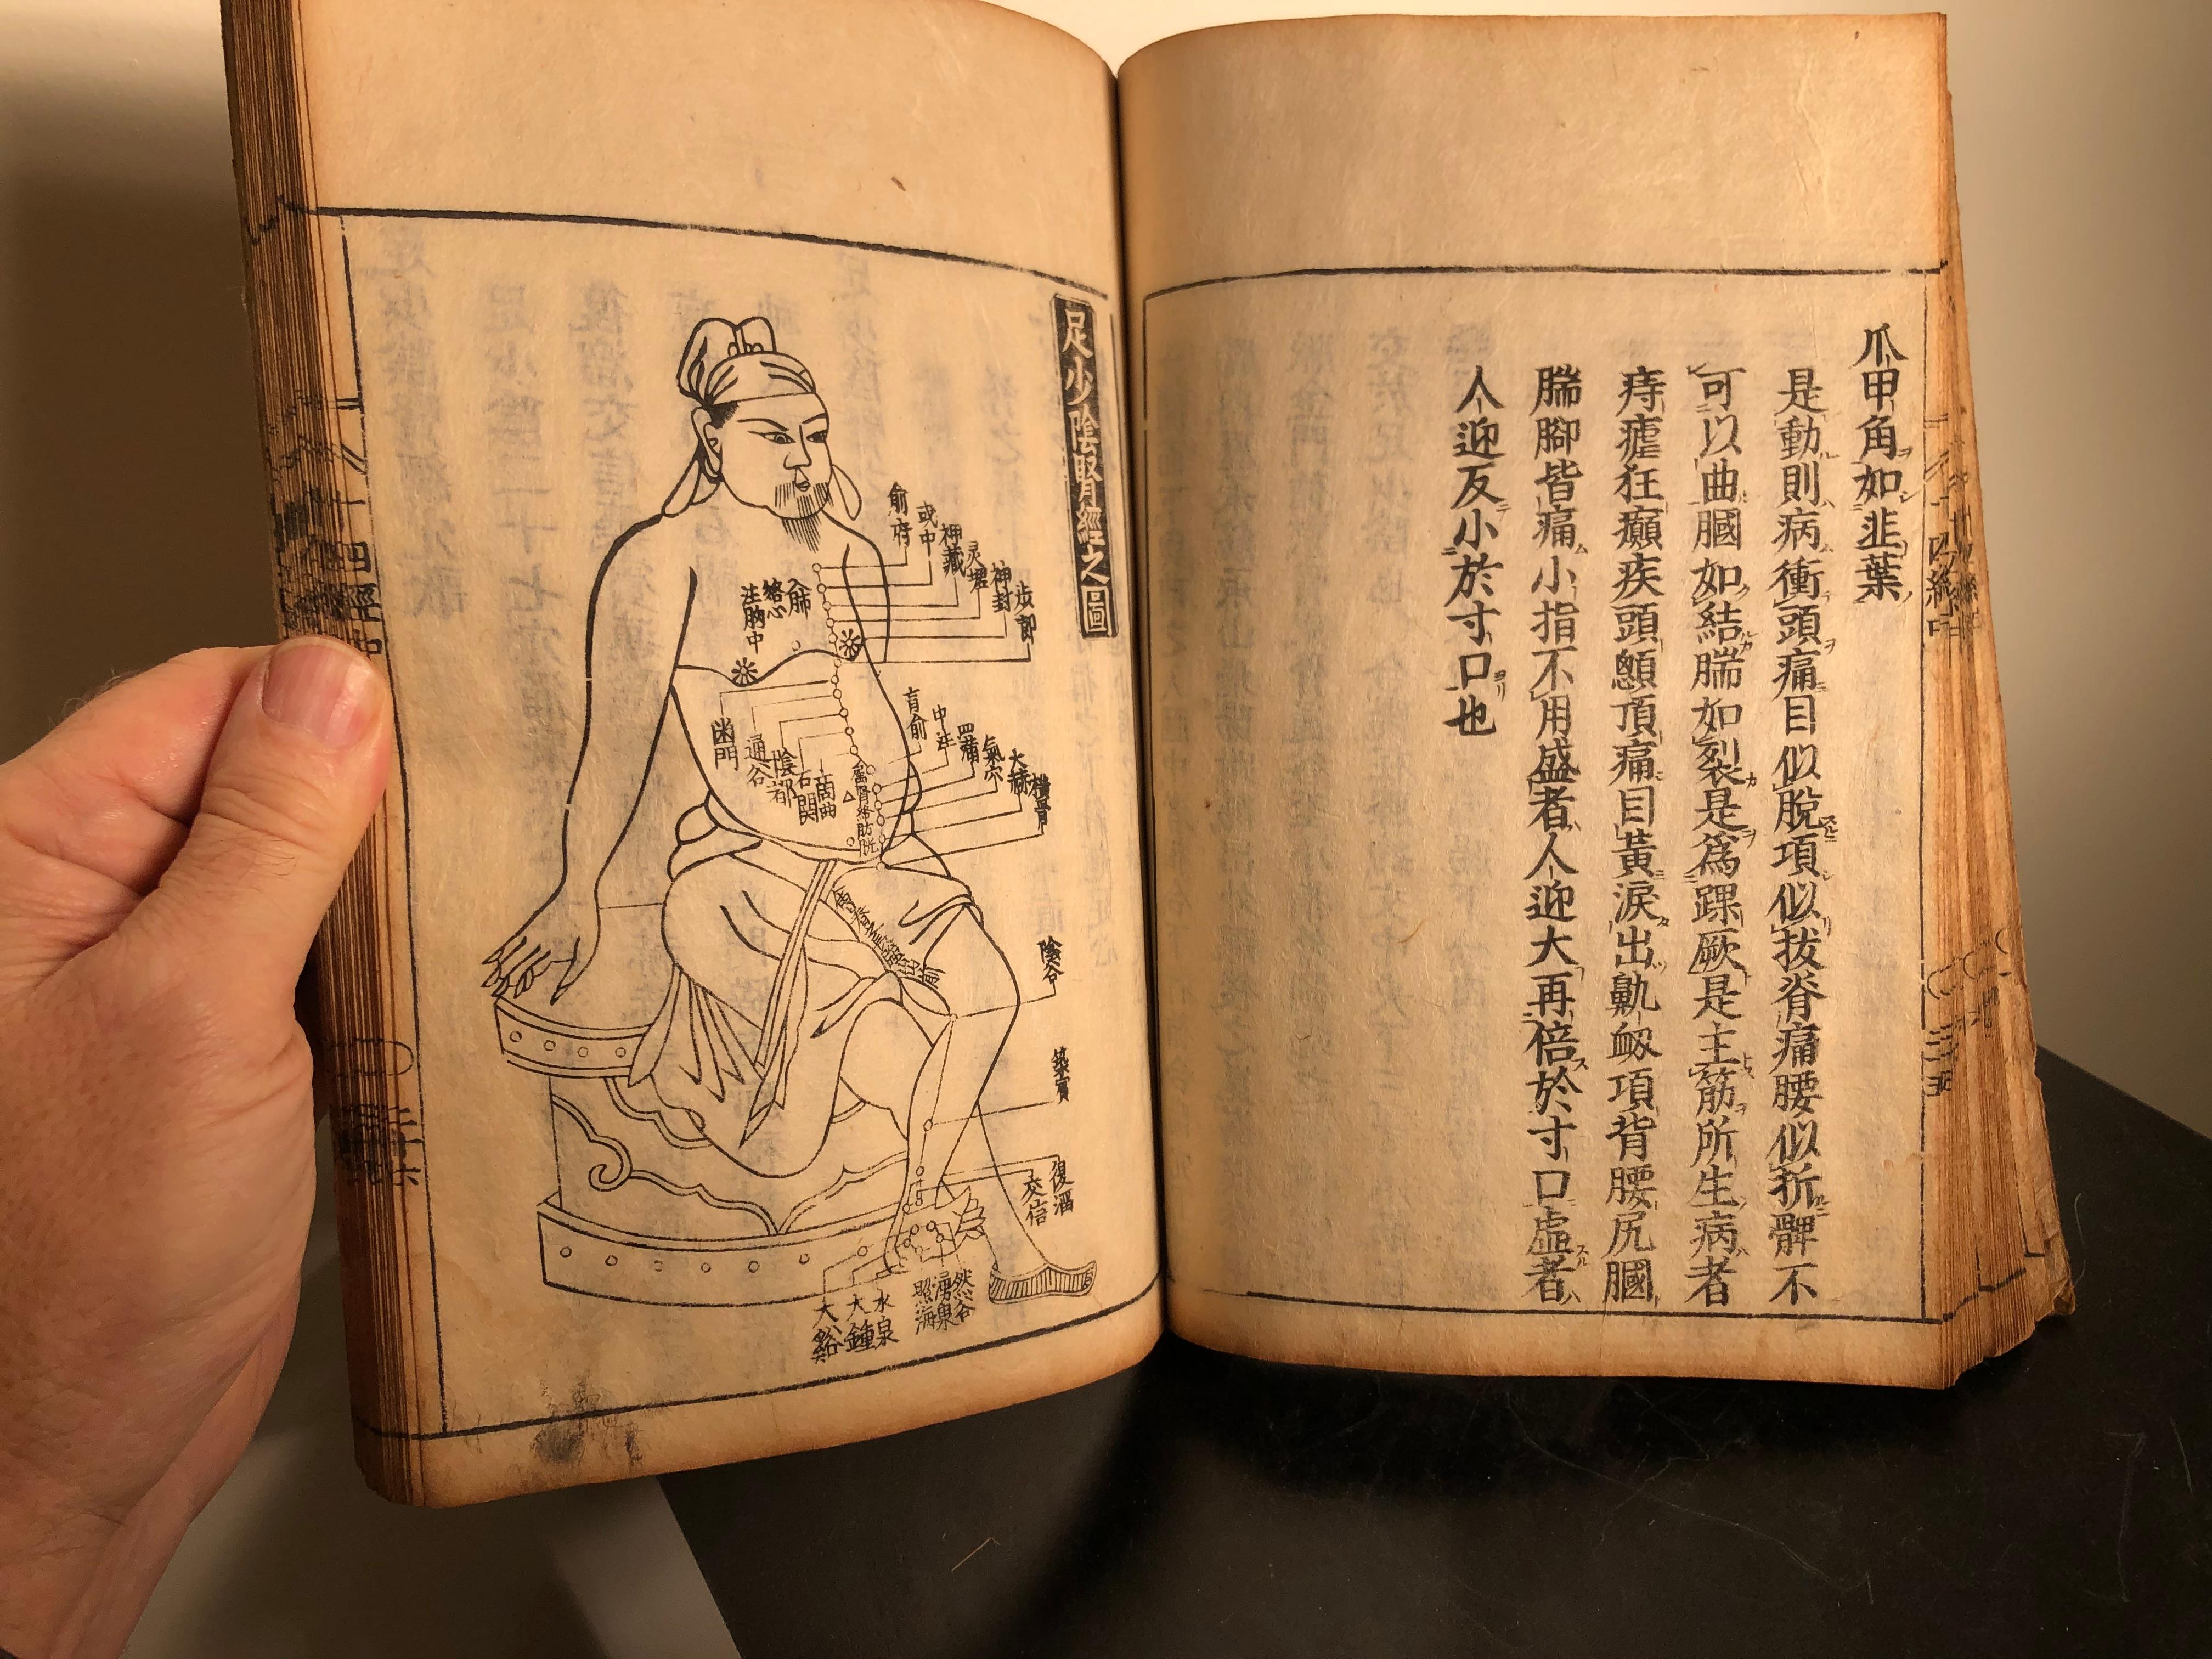 爪甲角如韭葉
是動則病衝頭痛目似脫項似拔脊痛腰似折髀不
可以曲膕如結腨如裂是爲踝厥是主筋所生病者
痔瘧狂癲疾頭顖頂痛目黃淚出鼽衄項背腰尻膕
腨腳皆痛小指不用盛者人迎大再倍於寸口虛者
人迎反小於寸口也
足少陰腎經之圖
俞府
或中
神藏
灵墟
神封
步郎
入肺
絡心
注胸中
肓俞
中注
四滿
氣穴
大赫
橫骨
幽門
通谷
陰都
石関
商曲
屬腎絡膀胱
陰谷
築賓
復溜
交信
然谷
湧泉
照海
水泉
大鍾
大谿
十四經中